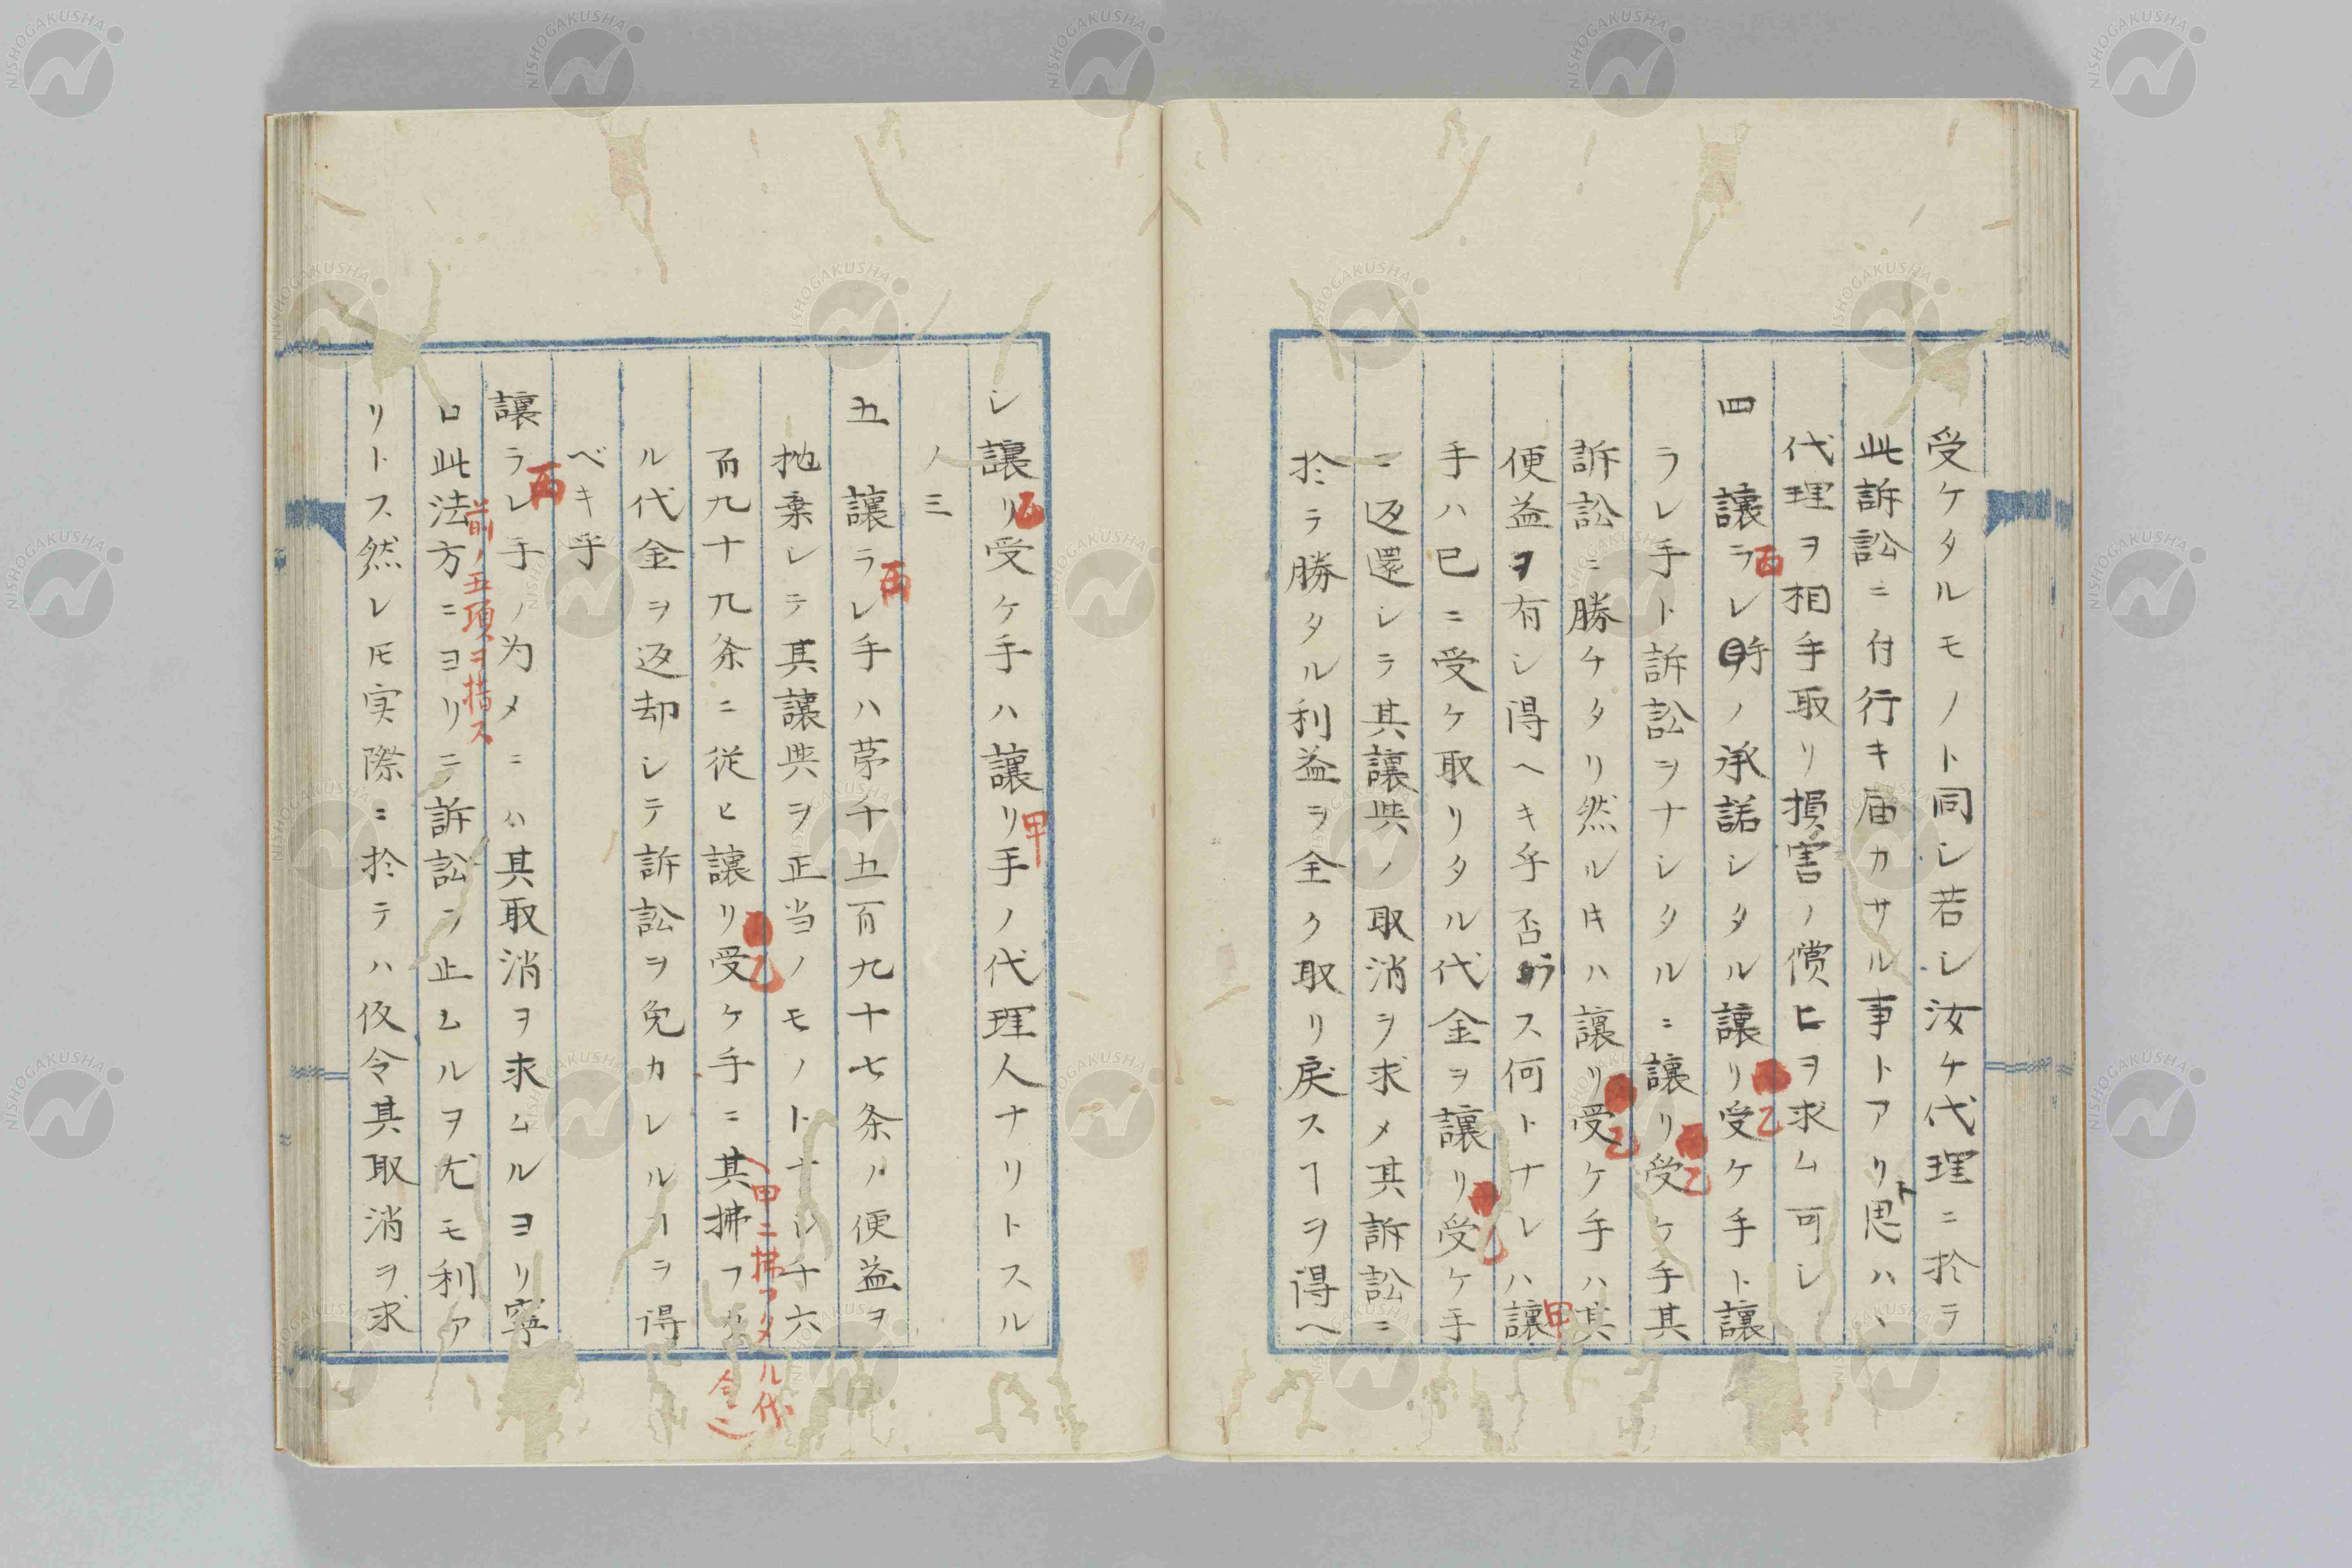 受ケタルモノト同シ若シ汝ケ代理ニ於テ
此訴訟ニ付行キ届カサル事トアリト思ハヽ
代理ヲ相手取リ損害ノ償ヒヲ求ム可シ
四 譲ラレ手ノ承諾シタル譲リ受ケ手ト譲
丙
乙
ラレ手ト訴訟ヲナシタルニ譲リ受ケ手其
乙
訴訟ニ勝チタリ然ルキハ譲リ受ケ手ハ其
乙
便益ヲ有シ得ヘキ乎否ラス何トナレハ譲
甲
手ハ已ニ受ケ取リタル代金ヲ譲リ受ケ手
乙
ニ返還シテ其譲與ノ取消ヲ求メ其訴訟ニ
於テ勝タル利益ヲ全ク取リ戻スヿヲ得ヘ
シ譲リ受ケ手ハ譲リ手ノ代理人ナリトスル
乙
甲
ノ三
五 譲ラレ手ハ第千五百九十七条ノ便益ヲ
丙
抛棄シテ其譲與ヲ正当ノモノトナシ千六
百九十九条ニ従ヒ譲リ受ケ手ニ其拂フ
乙
甲ニ拂フタル代
金ニ
ル代金ヲ返却シテ訴訟ヲ免カレルヿヲ得
ベキ乎
譲ラレ手ノ为メニハ其取消ヲ求ムルヨリ寧
丙
前ノ五項ヲ指ス
ロ此法方ニヨリテ訴訟ヲ止ムルヲ尤モ利ア
リトス然レ𪜈実際ニ於テハ仮令其取消ヲ求
NISHOGAKUSHA